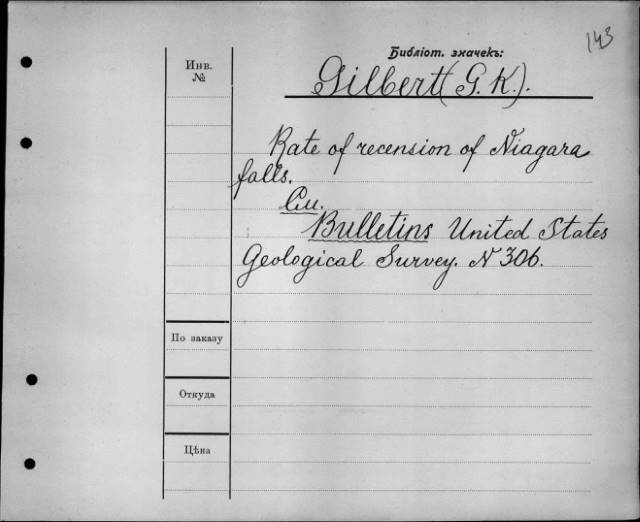 143
Библіот. значекъ:
Инв.
№
Gilbert (G. K.).
Rate of recension of Niagara
falls.
См.
Bulletins United States
Geological Survey. N 306.
По заказу
Откуда
Цѣна